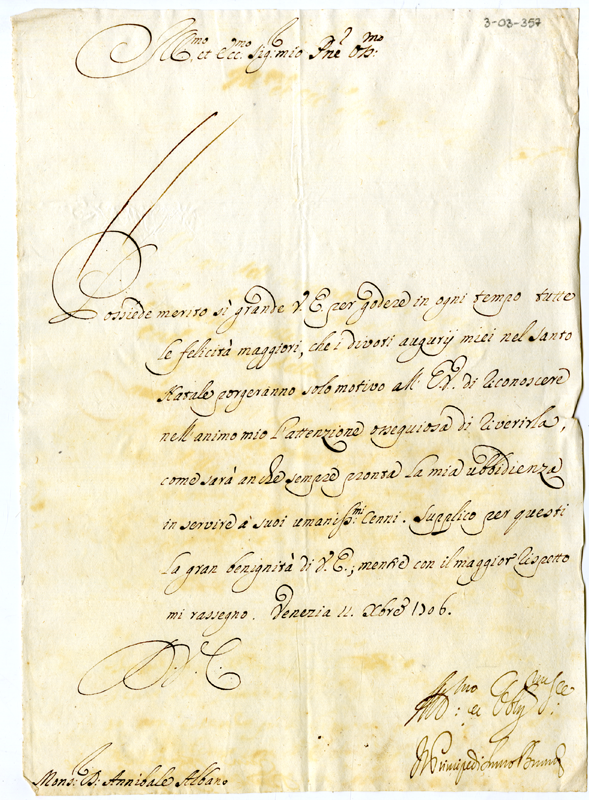 3-03-357
Ill.mo et Ecc.mo Sig. mio Pne Oss.mo
Possiede merito sì grande V. E. per godere in ogni tempo tutte
le felicità maggiori, che i divoti augurij miei nel Santo
Natale porgeranno solo motivo all' E.V. di riconoscere
nell' animo mio l'attenzione ossequiosa di riverirla,
come sarà anche sempre pronta la mia ubbidienza
in servire à suoi umaniss.mi Cenni. Supplico per questi
la gran benignità di V. E.; mentre con il maggior rispetto
mi rassegno. Venezia 11. Xbre 1706.
Di V. E.
Mons. D. Annibale Albano